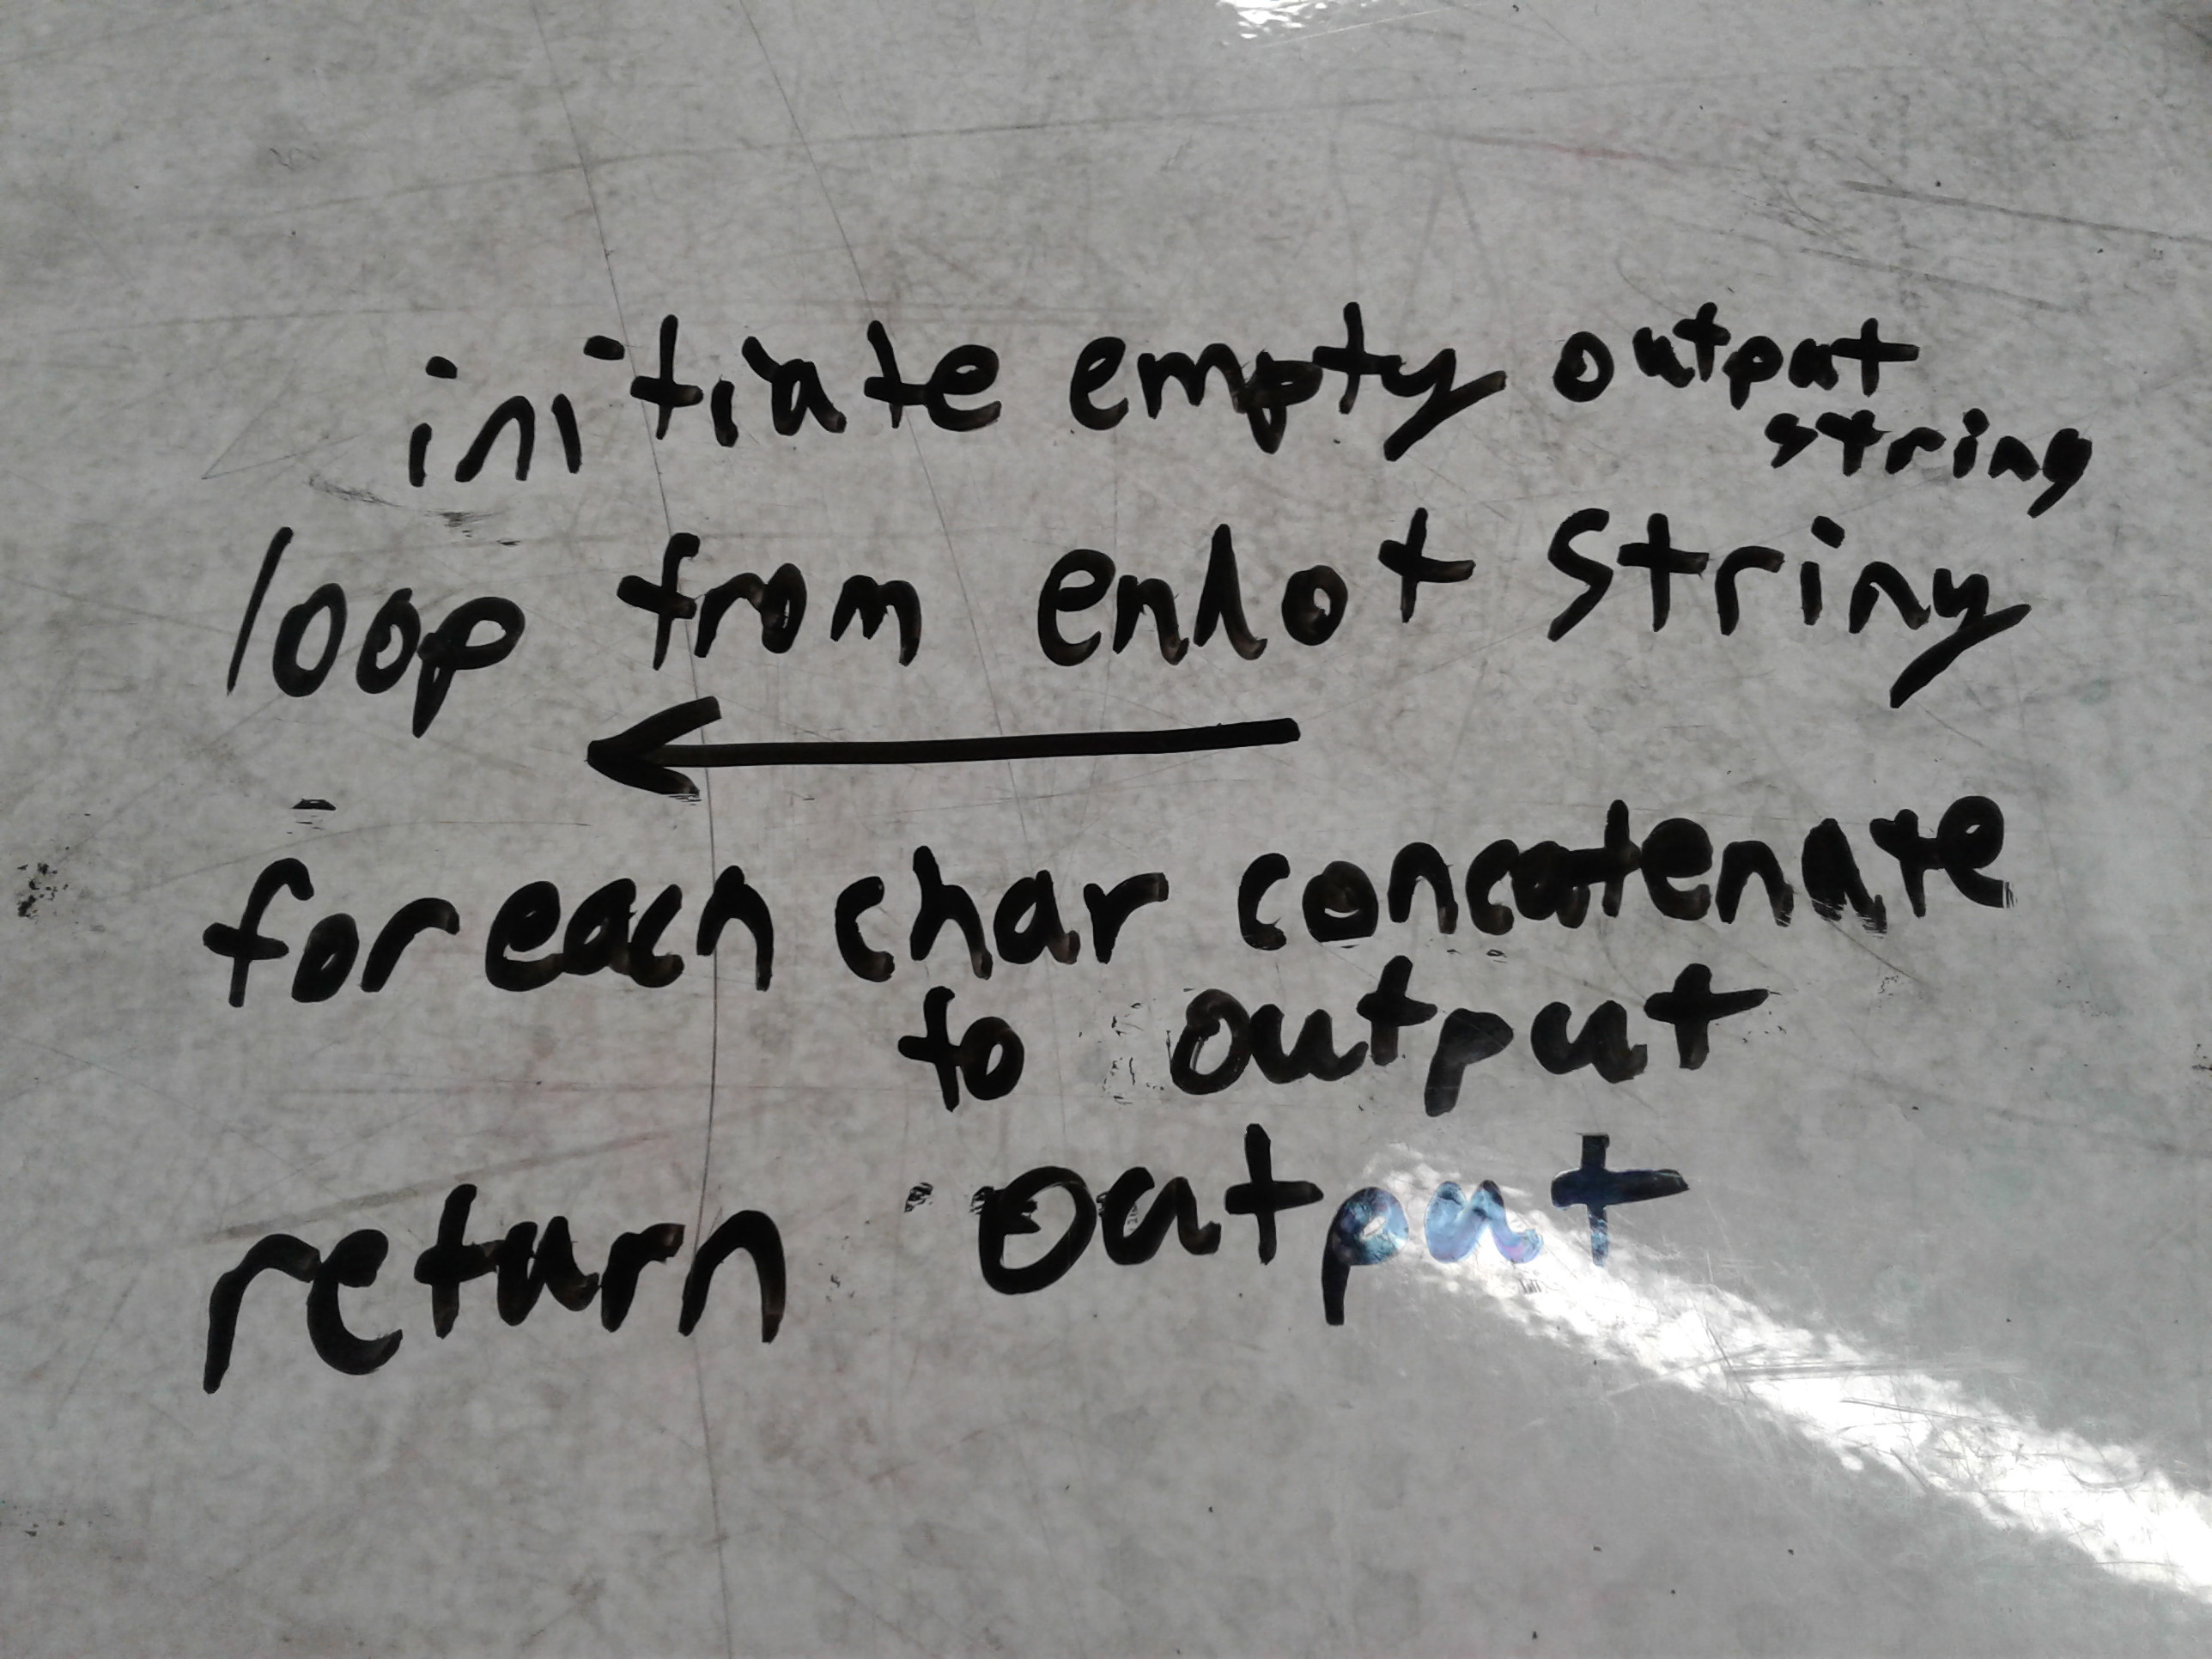 initiate empty output
string
loop from end of string
for each char concatenate
to output
return output